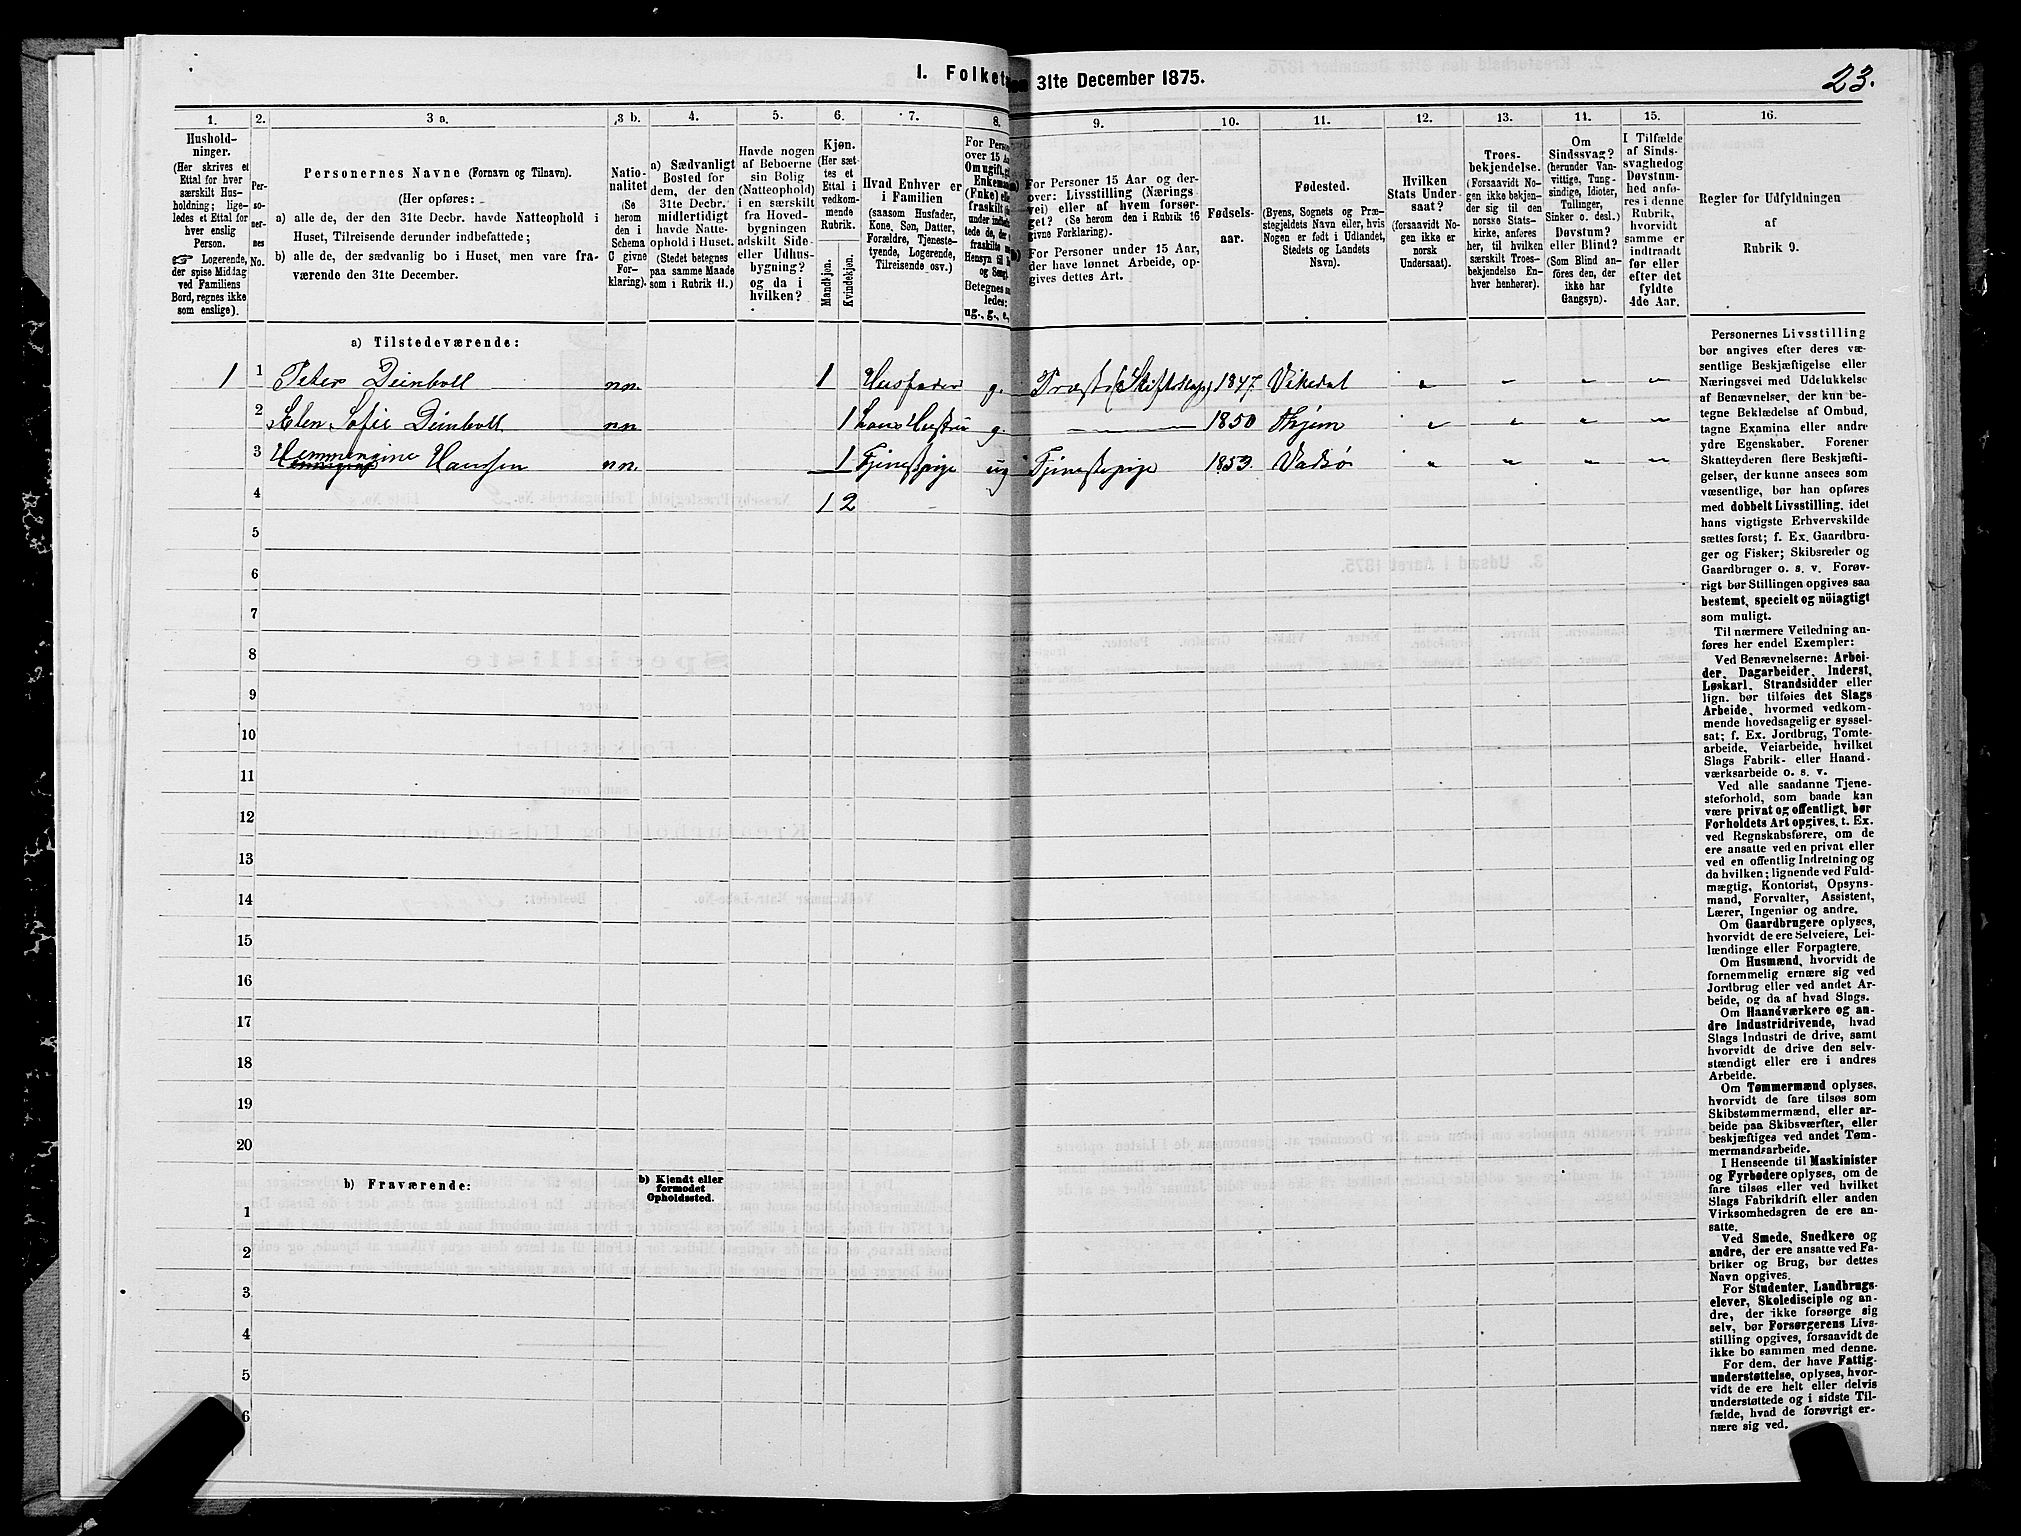 I. Folketa
31te December 1875.
23.
1. 2. 3 a. 3 b. 4. 5. 6. 7. 8. 9. 10. 11. 12. 13. 14. 15. 16.
Hushold-
ninger.
(Her skrives et
Ettal for hver
særskilt Hus-
holdning; lige-
ledes et Ettal for
hver enslig
Person.
☞ Logerende,
der spise Middag
ved Familiens
Bord, regnes ikke
som enslige).
Per-
so-
ner-
nes
No.
Personernes Navne (Fornavn og Tilnavn).
(Her opføres:
a) alle de, der den 31te Decbr. havde Natteophold i
Huset, Tilreisende derunder indbefattede;
b) alle de, der sædvanlig bo i Huset, men vare fra-
værende den 31te December.
Natio-
nalitet
(Se
herom
den i
Schema
C givne
For-
klaring).
a) Sædvanligt
Bosted for
dem, der den
31te Decbr.
midlertidigt
havde Natte-
ophold i Huset.
(Stedet betegnes
paa samme Maade
som i Rubrik 11.)
Havde nogen
af Beboerne
sin Bolig
(Natteophold)
i en særskilt
fra Hoved-
bygningen
adskilt Side-
eller Udhus-
bygning?
og da i
hvilken?
Kjøn.
(Her sæt-
tes et
Ettal i
vedkom-
mende
Rubrik.
Mandkjøn.
Kvindekjøn.
Hvad Enhver er
i Familien
(saasom Husfader,
Kone, Søn, Datter,
Forældre, Tjeneste-
tyende, Logerende,
Tilreisende osv.)
For Personer 15 Aar og der-
over: Livsstilling (Nærings
vei) eller af hvem forsør-
get? (Se herom den i Rubrik 16
givne Forklaring).
For Personer under 15 Aar,
der have lønnet Arbeide, op-
gives dettes Art.
Fødsels-
aar.
Fødested.
(Byens, Sognets og Præ-
stegjeldets Navn eller, hvis
Nogen er født i Udlandet,
Stedets og Landets
Navn).
Hvilken
Stats Under-
saat?
(forsaavidt No-
gen ikke er
norsk
Undersaat).
Troes-
bekjendelse.
(Forsaavidt No-
gen ikke bekjen-
der sig til den
norske Stats-
kirke, anføres
her, til hvilken
særskilt Troes-
bekjendelse En-
hver henhører).
Om
Sindssvag?
(herunder Van-
vittige, Tung-
sindige, Idioter,
Tullinger,
Sinker o. desl.)
Døvstum?
eller Blind?
(Som Blind an-
føres den, der
ikke har
Gangsyn).
I Tilfælde
af Sinds-
svaghedog
Døvstum-
hed anfø-
res i denne
Rubrik,
hvorvidt
samme er
indtraadt
før eller
efter det
fyldte
4de Aar.
Regler for Udfyldningen
af
Rubrik 9.
a) Tilstedeværende:
1 1 Peter Deinboll n.n. 1 Husfader g. Præst 1847 Vikedal " " " "
2 Elen Sofie Deinboll n.n. 1 Hans Hustru g. 1850 " " " "
3 Hemmingine Hansen n.n. 1 Tjenestpige ug Tjenestepige 1853. Vadsø " " " "
4 1 2
5
6
7
8
9
10
11
12
13
14
15
16
17
18
19
20
b) Fraværende:
b) Kjendt eller
formodet
Opholdssted.
1
2
3
4
5
6
Personernes Livsstilling
bør angives efter deres væ-
sentlige Beskjæftigelse eller
Næringsvei med Udelukkelse
af Benævnelser, der kun be-
tegne Beklædelse af Ombud,
tagne Examina eller andre
ydre Egenskaber. Forener
Skatteyderen flere Beskjæfti-
gelser, der kunne ansees som
væsentlige, bør han opføres
med dobbelt Livsstilling, idet
hans vigtigste Erhvervskilde
sættes først; f. Ex. Gaardbru-
ger og Fisker; Skibsreder og
Gaardbruger o. s. v. Forøv-
rigt bør Stillingen opgives saa
bestemt, specielt og nöiagtigt
som muligt.
Til nærmere Veiledning an-
føres her endel Exempler:
Ved Benævnelserne: Arbei-
der, Dagarbeider, Inderst,
Løskarl, Strandsidder eller
lign. bør tilføies det Slags
Arbeide, hvormed vedkom-
mende hovedsagelig er syssel-
sat; f. Ex. Jordbrug, Tomte-
arbeide, Veiarbeide, hvilket
Slags Fabrik- eller Haand-
værksarbeide o. s. v.
Ved alle saadanne Tjene-
steforhold, som baade kan
være privat og offentligt, bør
Forholdets Art opgives, t. Ex.
ved Regnskabsførere, om de
ere ansatte ved en privat eller
ved en offentlig Indretning og
da hvilken; lignende ved Fuld-
mægtig, Kontorist, Opsyns-
mand, Forvalter, Assistent,
Lærer, Ingeniør og andre.
Om Gaardbrugere oplyses,
hvorvidt de ere Selveiere, Lei-
lændinge eller Forpagtere.
Om Husmænd, hvorvidt de
fornemmelig ernære sig ved
Jordbrug eller ved andet Ar-
beide, og da af hvad Slags.
Om Haandværkere og an-
dre Industridrivende, hvad
Slags Industri de drive, samt
hvorvidt de drive den selv-
stændigt eller ere i andres
Arbeide.
Om Tømmermænd oplyses,
hvorvidt de fare tilsøs som
Skibstømmermænd, eller ar-
beide paa Skibsværfter, eller
beskjæftiges ved andet Tøm-
mermandsarbeide.
I Henseende til Maskinister
og Fyrbødere oplyses, om de
fare tilsøs eller ved hvilket
Slags Fabrikdrift eller anden
Virksomhedsgren de ere an-
satte.
Ved Smede, Snedkere og
andre, der ere ansatte ved Fa-
briker og Brug, bør dettes
Navn opgives.
For Studenter, Landbrugs-
elever, Skoledisciple og an-
dre, der ikke forsørge sig
selv, bør Forsørgerens Livs-
stilling opgives, forsaavidt de
ikke bo sammen med denne.
For dem, der have Fattig-
understøttelse, oplyses, hvor-
vidt de ere helt eller delvis
understøttede og i sidste Til-
fælde, hvad de forøvrigt er-
nære sig ved.